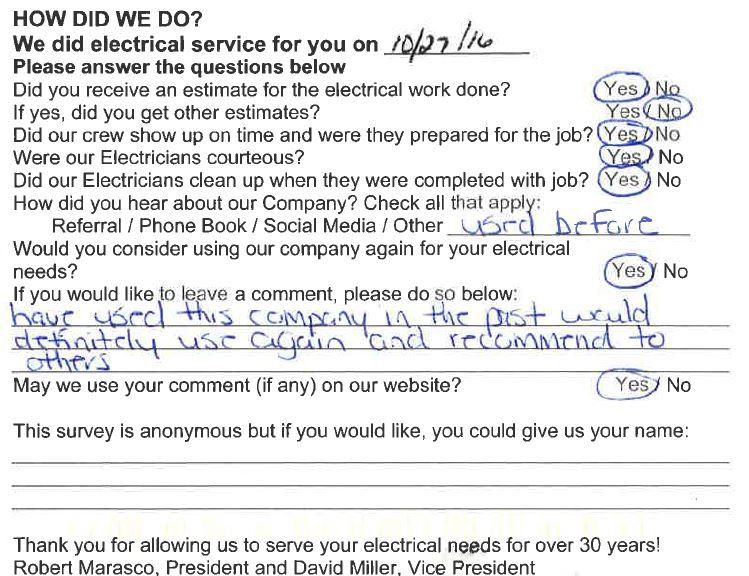 HOW DID WE DO?
We did electrical service for you on 10/27/16
Please answer the questions below
Did you receive an estimate for the electrical work done? Yes / No
If yes, did you get other estimates? Yes / No
Did our crew show up on time and were they prepared for the job? Yes / No
Were our Electricians courteous? Yes / No
Did our Electricians clean up when they were completed with job? Yes / No
How did you hear about our Company? Check all that apply:
Referral / Phone Book / Social Media / Other used before
Would you consider using our company again for your electrical
needs? Yes / No
If you would like to leave a comment, please do so below:
have used this company in the past would
definitely use again and recommend to
others
May we use your comment (if any) on our website? Yes / No
This survey is anonymous but if you would like, you could give us your name:
Thank you for allowing us to serve your electrical needs for over 30 years!
Robert Marasco, President and David Miller, Vice President